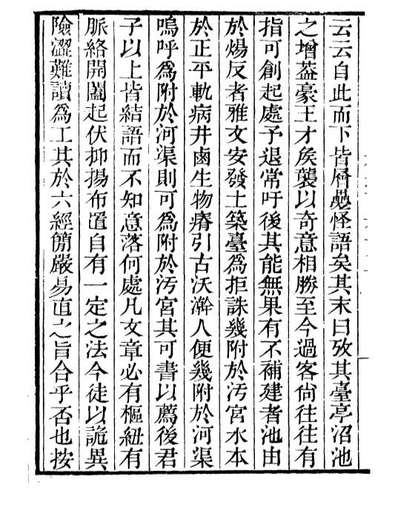 云云自此而下皆屑戱怪語矣其末曰攷其臺亭沼池
之增葢豪王才矦襲以奇意相勝至今過客尙往往有
指可創起處予退常吁後其能無果有不補建者池由
於煬反者雅文安發土築臺爲拒誅幾附於汚宮水本
於正平軌病井鹵生物瘠引古沃澣人便幾附於河渠
嗚呼爲附於河渠則可爲附於汚宮其可書以薦後君
子以上皆結語而不知意落何處凡文章必有樞紐有
脈絡開闔起伏抑揚布置自有一定之法今徒以詭異
險澀難讀爲工其於六經簡嚴易直之旨合乎否也按